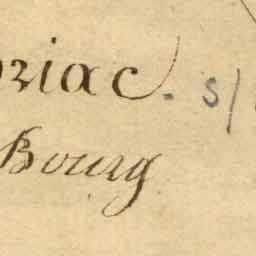 oriac. s/
Bourg